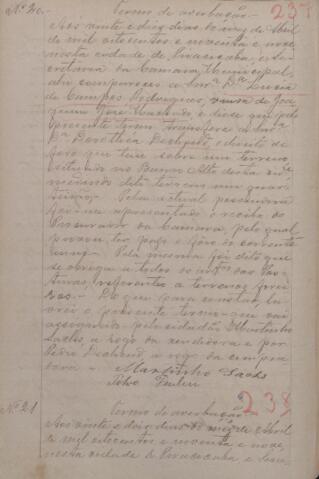 Nº 20.- Termo de averbação.- 237
Aos vinte e dois dias do mez de Abril
de mil oitocentos e noventa e nove
nesta cidade de Piracicaba, e Se-
cretaria da Camara Municipal,
ahi compareceu a Snrª. Dª. Luiza
de Campos Rodrigues, viuva de Joa-
quim José e disse que pelo
presente termo transfere a Snrª.
Dª. Dorothéa o direito de
fôro que tem sobre um terreno
situado no Bairro Alto desta cidᵉ
medindo dito terreno um quar-
teirão. Pela actual possuidora
foi-me apresentado o recibo do
Procurador da Camara, pelo qual
provou ter pago o fôro do corrente
anno. Pela mesma foi dito que
se obrigava a todos os artˢ das Pos-
turas, referentes a terrenos forei-
ros.- Do que para constar, la-
vrei o presente termo que vai
assignado pelo cidadão Martinho
Sachs, a rogo da vendedora e por
Pedro a rogo da compra-
dora. - Martinho Sachs
Pedro
Nº 21 Termo de averbação 238
Aos vinte e dois dias do mez de Abril
de mil oitocentos e noventa e nove,
nesta cidade de Piracicaba e Secre-